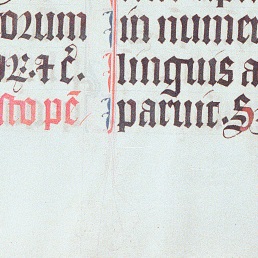 orum
sto pē
in nume
linguis a
paruit. S